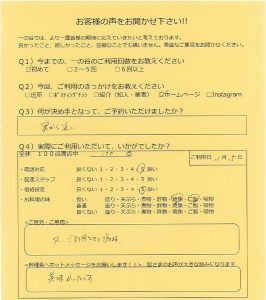 お客様の声をお聞かせ下さい!!
一の谷では、より一層皆様の期待に応えていきたいと考えております。
良かったこと、嬉しかったこと、些細なことでも構いません。率直なご意見をお聞かせください。
Q1）今までの、一の谷のご利用回数をお教えください
☑初めて □2～5回 □6回以上
Q2）今回、ご利用のきっかけをお教えください
□近所 □ポスティングチラシ □紹介(知人・業者) ☑ホームページ □Instagram
Q3）何が決め手となって、ご予約いただけましたか？
Q4）実際にご利用いただいて、いかがでしたか？
全体 100点満点中 点
ご利用日
・電話対応 良くない 1・2・3・4・5 良い
・配達スタッフ 良くない 1・2・3・4・5 良い
・価格設定 良くない 1・2・3・4・5 良い
・お料理の味 良い 造り・天ぷら・煮物・酢物・焼魚・ご飯・吸物
普通 造り・天ぷら・煮物・酢物・焼魚・ご飯・吸物
良くない 造り・天ぷら・煮物・酢物・焼魚・ご飯・吸物
<ご意見・ご感想>
又、ご利用させて頂きます。
<料理長へホットメッセージをお願いします!!> 皆さまのお声が大きな励みになります
美味しかったです